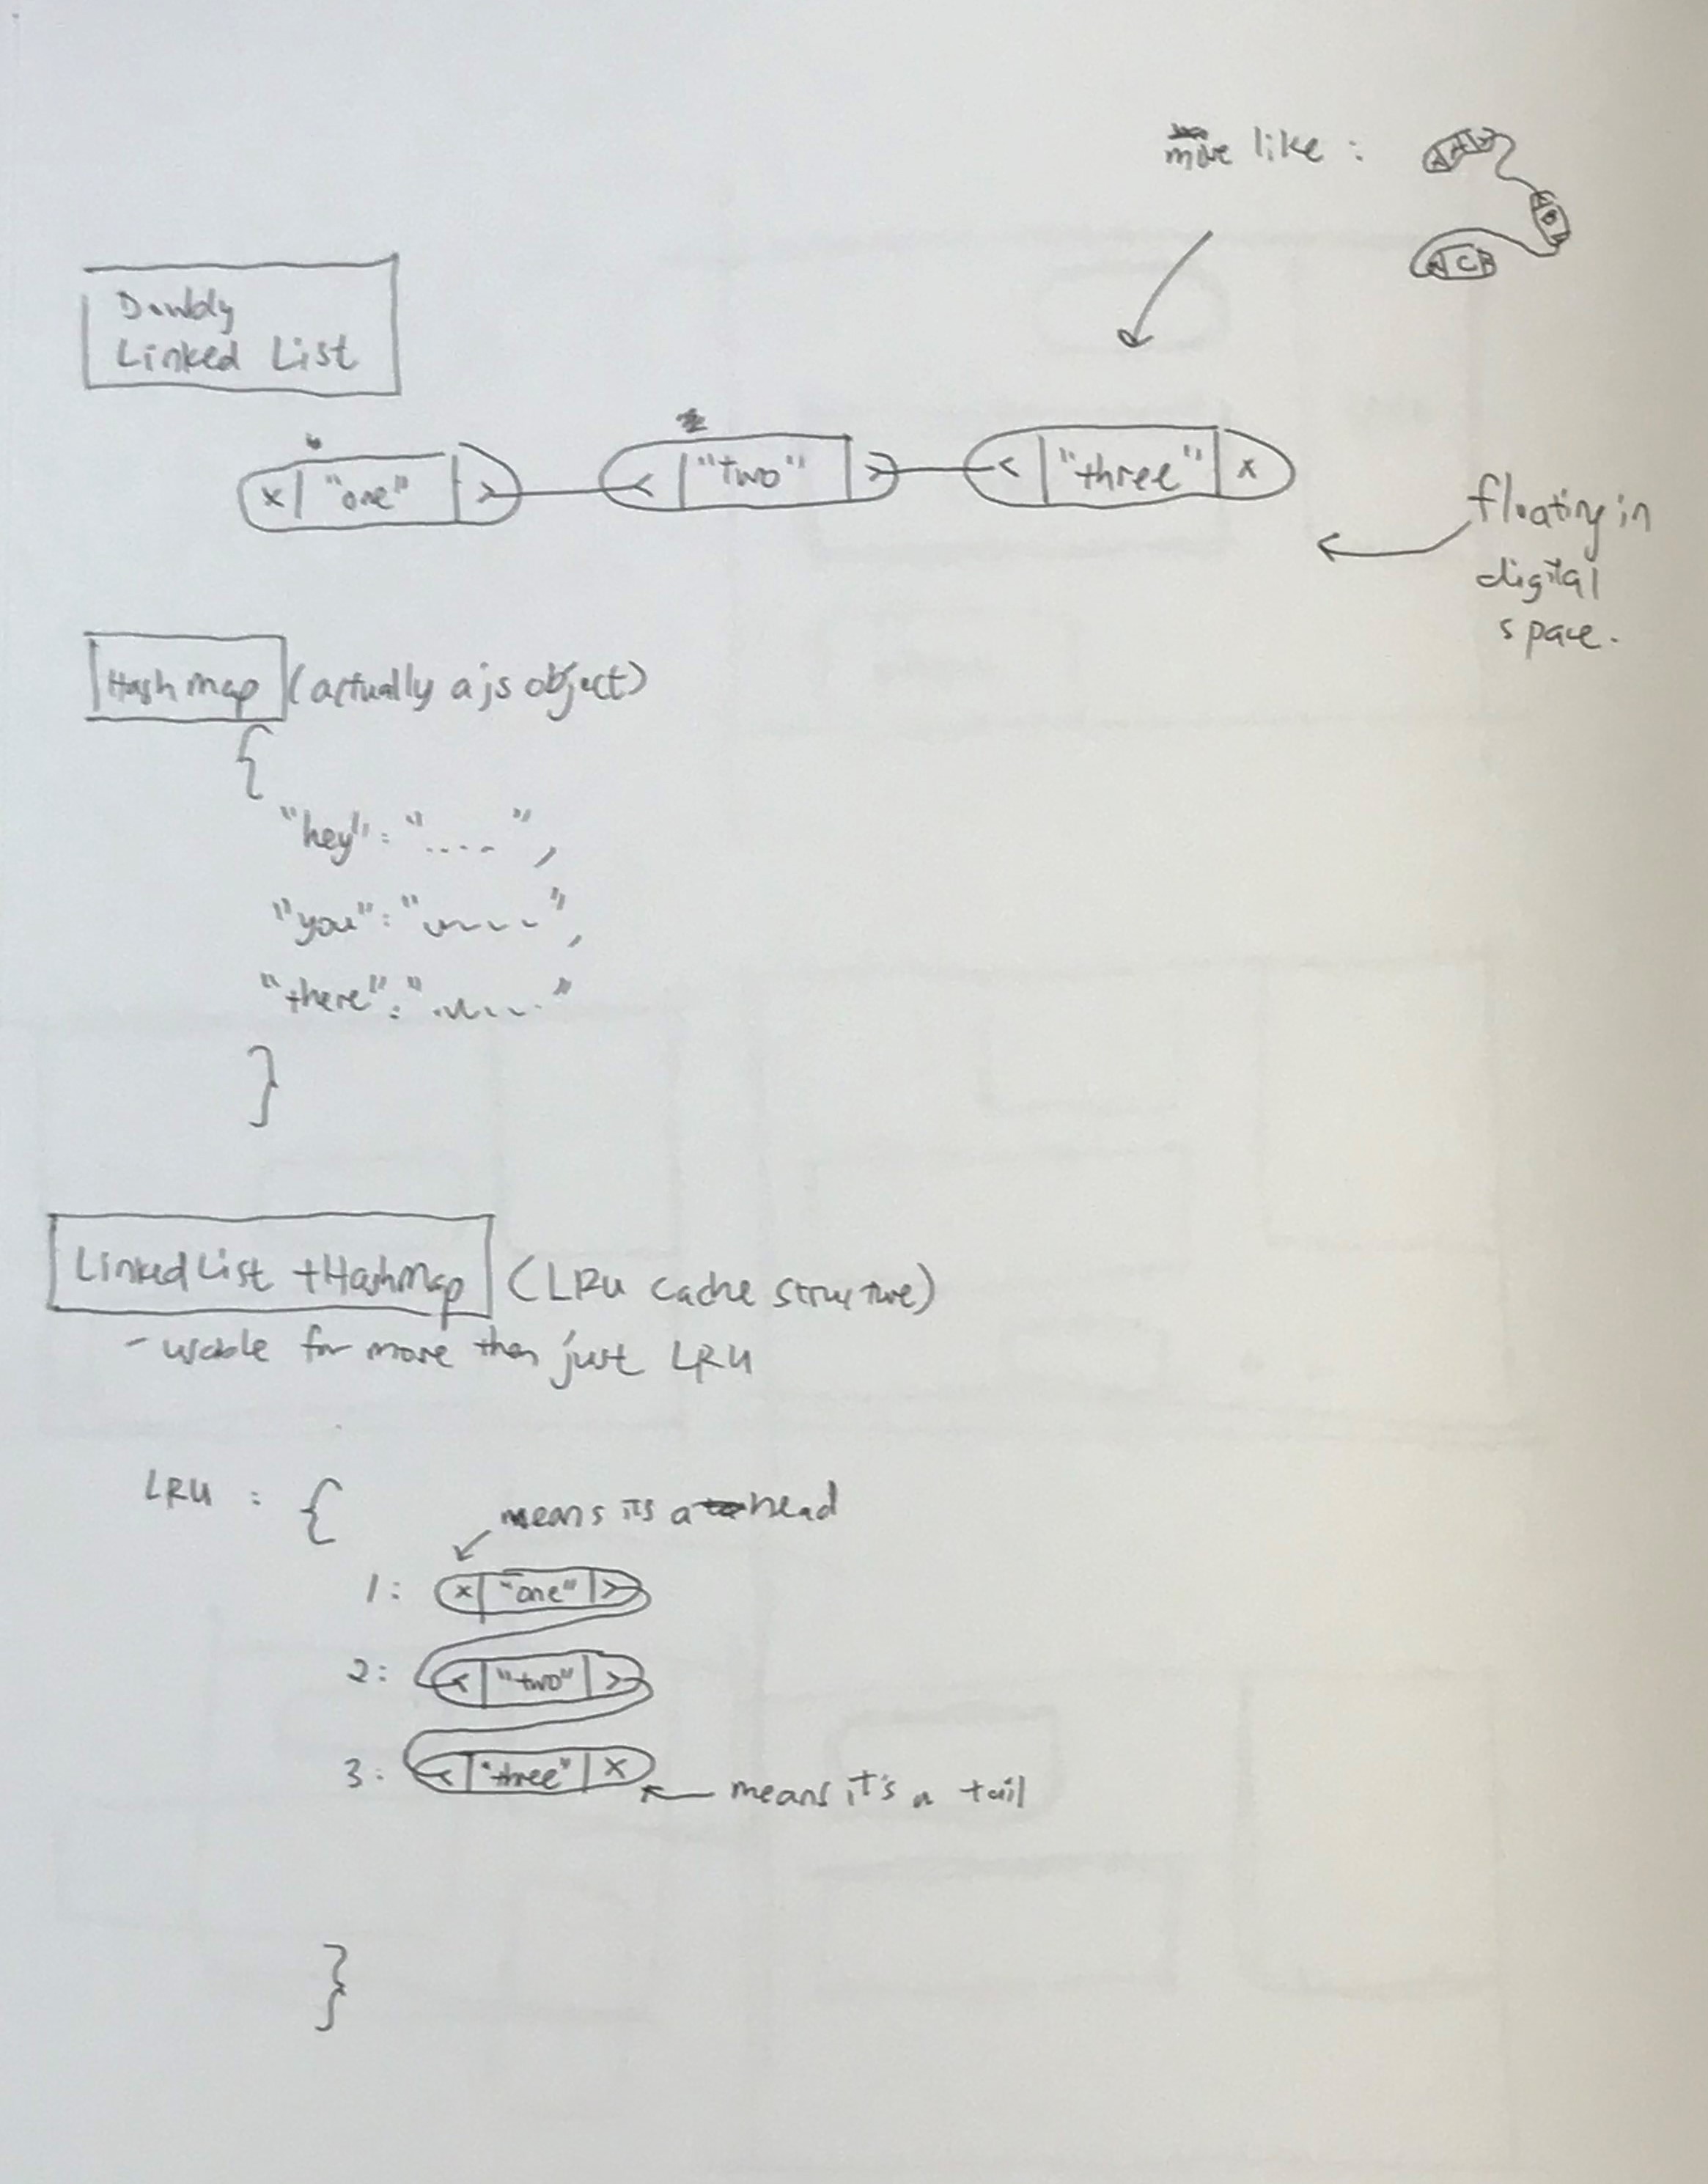 more like :
Doubly
Linked List
x "one" >
< "two" >
< "three" x
floating in
digital
space.
Hash map (actually a js object)
{
"hey": "....",
"you": "~~~~",
"there": "~~~~"
}
Linked List + HashMap (LRU cache structure)
- usable for more then just LRU
LRU : {
means its a head
1: x "one" >
2: < "two" >
3: < "three" x
means it's a tail
}